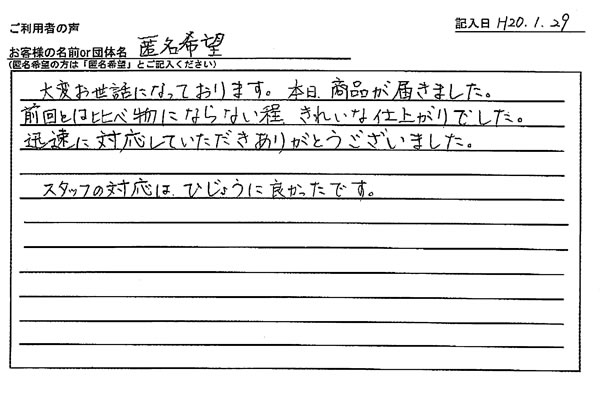 ご利用者の声
記入日 H20.1.29
お客様の名前or団体名 匿名希望
(匿名希望の方は「匿名希望」とご記入ください)
大変お世話になっております。本日、商品が届きました。
前回とは比べ物にならない程、きれいな仕上がりでした。
迅速に対応していただきありがとうございました。
スタッフの対応は、ひじょうに良かったです。